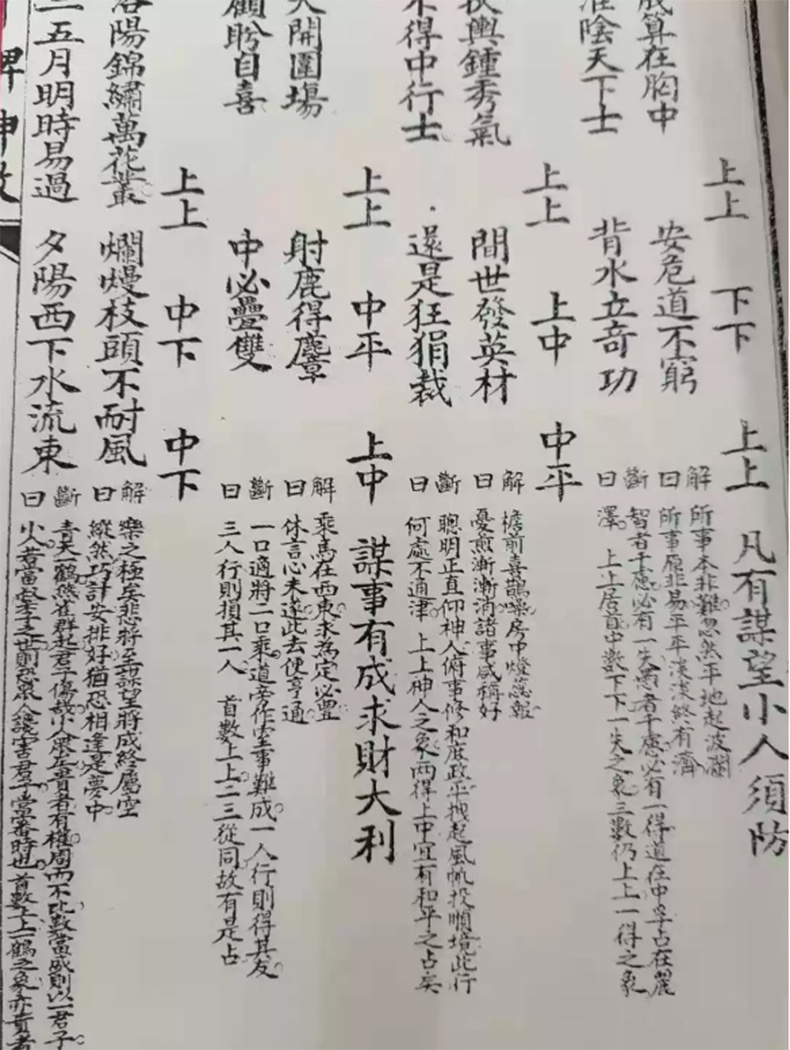 上上 下下 上上 凡有謀望小人須防
算在胸中 安危道不窮
解曰 所事本非難忽然平地起波瀾
所事原非易平平淡淡終有濟
淮陰天下士 背水立奇功
斷曰 智者千慮必有一失愚者千慮必有一得道在中孚占在麗
澤 上上居首中數下下一失之象三數仍上上一得之象
上上 上中 中平
扶輿鍾秀氣 間世發英材
解曰 檐前喜鵲噪房中燈蕊報
憂煎漸漸消諸事咸稱好
不得中行士 還是狂狷裁
斷曰 聰明正直仰神人俯事修和庶政平拽起風帆投順境此行
何處不通津 上上神人之象兩得上中宜有和平之占矣
上上 中平 上中 謀事有成求財大利
大開圍場 射鹿得麞
解曰 乘馬在西東求為定必豐
休言心未遂此去便亨通
顧盼自喜 中必疊雙
斷曰 一口適將二口乘道旁作室事難成一人行則得其友
三人行則損其一人 首數上上二三從同故有是占
上上 中下 中下
洛陽錦繡萬花叢 爛熳枝頭不耐風
解曰 樂之極矣悲將至謀望將成終屬空
縱然巧計安排好猶恐相逢是夢中
二五月明時易過 夕陽西下水流東
斷曰 青天一鶴燕雀群起君子傷哉小人眾盛貴者有權周而不比數當咸則以一君子
小人若當叔季之世則恐眾人讒害君子當審時也 首數上上一鶴之象亦貴者
牌神數